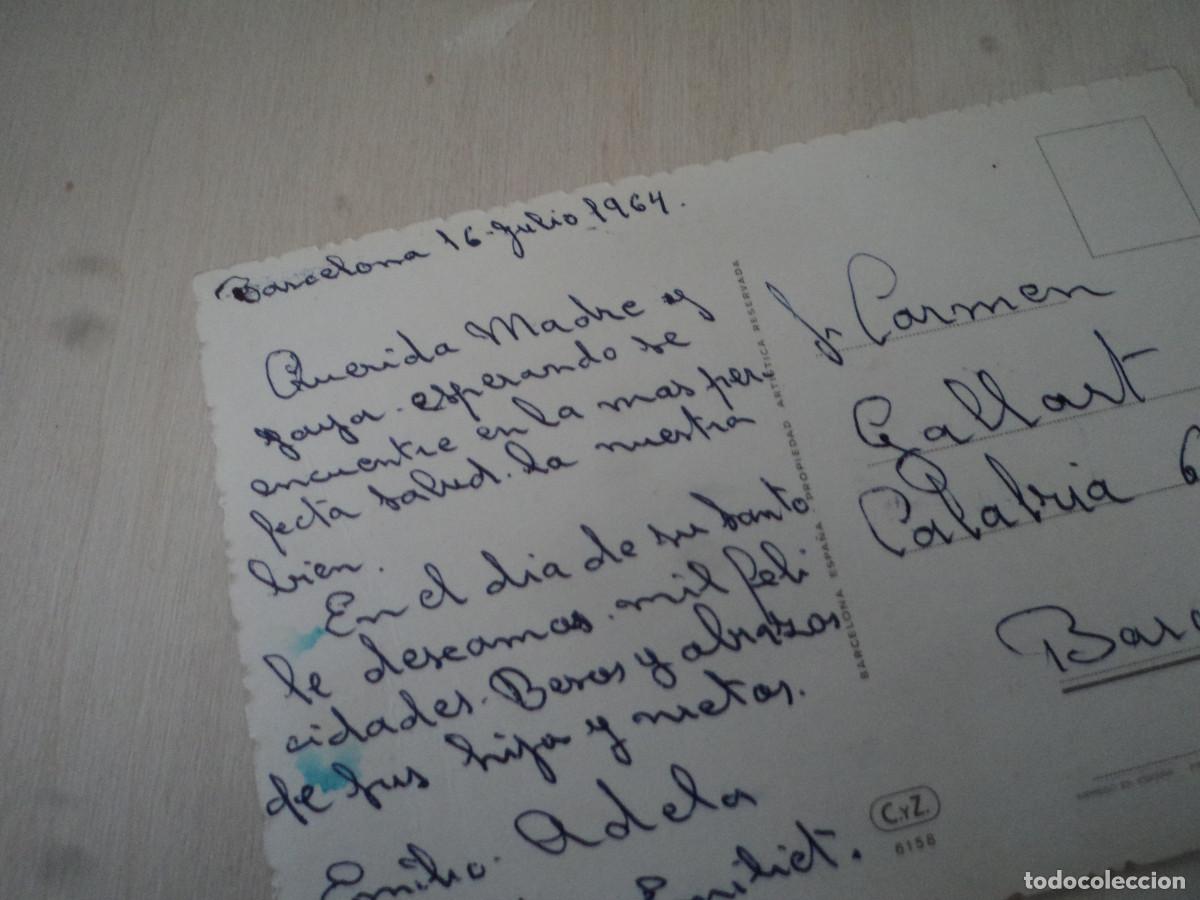 Barcelona 16-Julio 1964.
Querida Madre y
yaya. esperando se
encuentre en la mas per
fecta salud. la nuestra
bien.
En el dia de su santo
le deseamos mil feli
cidades. Besos y abrazos
de sus hija y nietos.
Emilio. Adela
Emiliet.
BARCELONA ESPAÑA - PROPIEDAD ARTISTICA RESERVADA
Carmen
Gallart
Calabria 6
Barc
C.YZ.
6158
todocoleccion